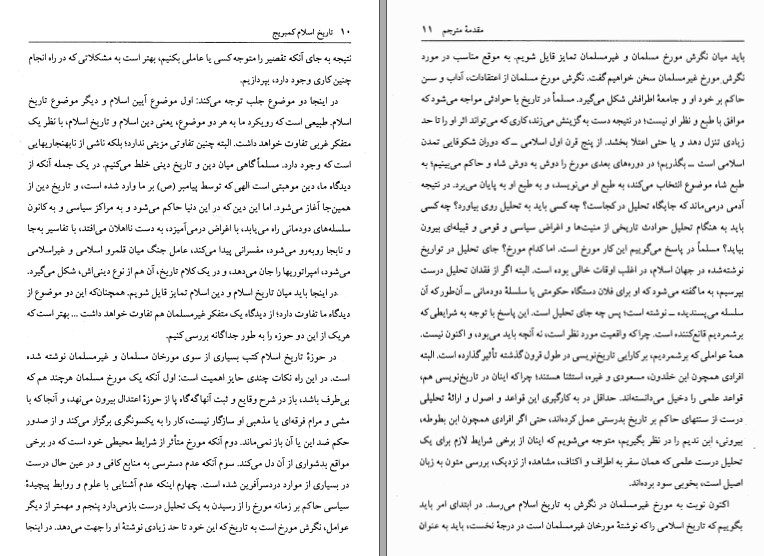 ۱۰ تاریخ اسلام کمبریج
نتیجه به جای آنکه تقصیر را متوجه کسی یا عاملی بکنیم، بهتر است به مشکلاتی که در راه انجام
چنین کاری وجود دارد، بپردازیم.
در اینجا دو موضوع جلب توجه می‌کند: اول موضوع آیین اسلام و دیگر موضوع تاریخ
اسلام. طبیعی است که رویکرد ما به هر دو موضوع، یعنی دین اسلام و تاریخ اسلام، با نظر یک
متفکر غربی تفاوت خواهد داشت. البته چنین تفاوتی مزیتی ندارد؛ بلکه ناشی از نابهنجاریهایی
است که وجود دارد. مسلماً گاهی میان دین و تاریخ دینی خلط می‌کنیم. در یک جمله آنکه از
دیدگاه ما، دین موهبتی است الهی که توسط پیامبر (ص) بر ما وارد شده است، و تاریخ دین از
همین‌جا آغاز می‌شود. اما این دین که در این دنیا حاکم می‌شود و به مراکز سیاسی و به کانون
سلسله‌های دودمانی راه می‌یابد، با اغراض درمی‌آمیزد، به دست نااهلان می‌افتد، با تفاسیر به‌جا
و نابجا روبه‌رو می‌شود، مفسرانی پیدا می‌کند، عامل جنگ میان قلمرو اسلامی و غیراسلامی
می‌شود، امپراتوریها را جان می‌دهد، و در یک کلام تاریخ، آن هم از نوع دینی‌اش، شکل می‌گیرد.
در اینجا باید میان تاریخ اسلام و دین اسلام تمایز قایل شویم. همچنان‌که این دو موضوع از
دیدگاه ما تفاوت دارد؛ از دیدگاه یک متفکر غیرمسلمان هم تفاوت خواهد داشت ... بهتر است که
هریک از این دو حوزه را به طور جداگانه بررسی کنیم.
در حوزهٔ تاریخ اسلام کتب بسیاری از سوی مورخان مسلمان و غیرمسلمان نوشته شده
است. در این راه نکات چندی حایز اهمیت است: اول آنکه یک مورخ مسلمان هرچند هم که
بی‌طرف باشد، باز در شرح وقایع و ثبت آنها گه‌گاه پا از حوزهٔ اعتدال بیرون می‌نهد، و آنجا که با
مشی و مرام فرقه‌ای یا مذهبی او سازگار نیست، کار را به یکسونگری برگزار می‌کند و از صدور
حکم ضد این یا آن باز نمی‌ماند. دوم آنکه مورخ متأثر از شرایط محیطی خود است که در برخی
مواقع بدشواری از آن دل می‌کند. سوم آنکه عدم دسترسی به منابع کافی و در عین حال درست
در بسیاری از موارد دردسرآفرین شده است. چهارم اینکه عدم آشنایی با علوم و روابط پیچیدهٔ
سیاسی حاکم بر زمانه مورخ را از رسیدن به یک تحلیل درست بازمی‌دارد پنجم و مهمتر از دیگر
عوامل، نگرش مورخ است به تاریخ که این خود تا حد زیادی نوشتهٔ او را جهت می‌دهد. در اینجا
مقدمهٔ مترجم ۱۱
باید میان نگرش مورخ مسلمان و غیرمسلمان تمایز قایل شویم. به موقع مناسب در مورد
نگرش مورخ غیرمسلمان سخن خواهیم گفت. نگرش مورخ مسلمان از اعتقادات، آداب و سنن
حاکم بر خود او و جامعهٔ اطرافش شکل می‌گیرد. مسلماً در تاریخ با حوادثی مواجه می‌شود که
موافق با طبع و نظر او نیست؛ در نتیجه دست به گزینش می‌زند، کاری که می‌تواند اثر او را تا حد
زیادی تنزل دهد و یا حتی اعتلا بخشد. از پنج قرن اول اسلامی ــ که دوران شکوفایی تمدن
اسلامی است ــ بگذریم؛ در دوره‌های بعدی مورخ را دوش به دوش شاه و حاکم می‌بینیم؛ به
طبع شاه موضوع انتخاب می‌کند، به طبع او می‌نویسد، و به طبع او به پایان می‌برد. در نتیجه
آدمی درمی‌ماند که جایگاه تحلیل در کجاست؟ چه کسی باید به تحلیل روی بیاورد؟ چه کسی
باید به هنگام تحلیل حوادث تاریخی از منیت‌ها و اغراض سیاسی و قومی و قبیله‌ای بیرون
بیاید؟ مسلماً در پاسخ می‌گوییم این کار مورخ است. اما کدام مورخ؟ جای تحلیل در تواریخ
نوشته‌شده در جهان اسلام، در اغلب اوقات خالی بوده است. البته اگر از فقدان تحلیل درست
بپرسیم، به ما گفته می‌شود که او برای فلان دستگاه حکومتی یا سلسلهٔ دودمانی ــ آن‌طور که آن
سلسله می‌پسندیده ــ نوشته است؛ پس چه جای تحلیل است. این پاسخ با توجه به شرایطی که
برشمردیم قانع‌کننده است. چراکه واقعیت مورد نظر است، نه آنچه باید می‌بود، و اکنون نیست.
همهٔ عواملی که برشمردیم، بر کارایی تاریخ‌نویسی در طول قرون گذشته تأثیر گذارده است. البته
افرادی همچون ابن خلدون، مسعودی و غیره، استثنا هستند؛ چراکه اینان در تاریخ‌نویسی هم،
قواعد علمی را دخیل می‌دانسته‌اند. حداقل در به کارگیری این قواعد و اصول و ارائهٔ تحلیلی
درست از سنتهای حاکم بر تاریخ بدرستی عمل کرده‌اند، حتی اگر افرادی همچون ابن بطوطه،
بیرونی، ابن ندیم را در نظر بگیریم، متوجه می‌شویم که اینان از برخی شرایط لازم برای یک
تحلیل درست علمی که همان سفر به اطراف و اکناف، مشاهده از نزدیک، بررسی متون به زبان
اصیل است، بخوبی سود برده‌اند.
اکنون نوبت به مورخ غیرمسلمان در نگرش به تاریخ اسلام می‌رسد. در ابتدای امر باید
بگوییم که تاریخ اسلامی را که نوشتهٔ مورخان غیرمسلمان است در درجهٔ نخست، باید به عنوان